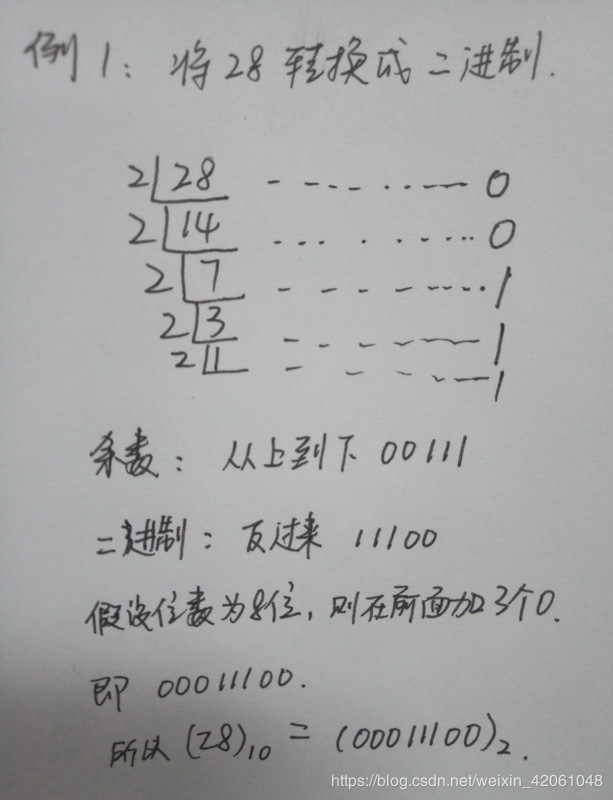 例1: 将28转换成二进制.
2 28 ------- 0
2 14 ------- 0
2 7 ------- 1
2 3 ------- 1
2 1 ------- 1
余数: 从上到下 00111
二进制: 反过来 11100
假设位数为8位, 则在前面加3个0.
即 00011100.
所以 (28)10 = (00011100)2.
https://blog.csdn.net/weixin_42061048